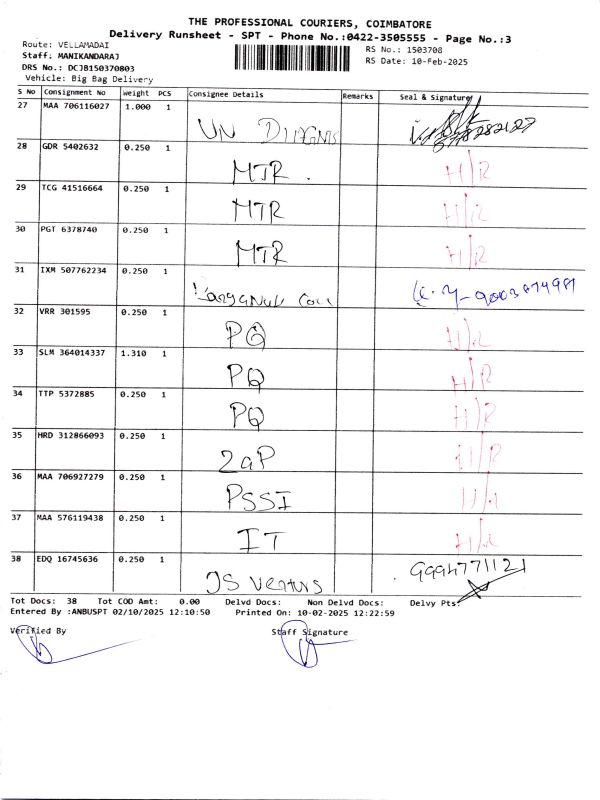 THE PROFESSIONAL COURIERS, COIMBATORE
Delivery Runsheet - SPT - Phone No.:0422-3505555 - Page No.:3
Route: VELLAMADAI
RS No.: 1503708
Staff: MANIKANDARAJ
RS Date: 10-Feb-2025
DRS No.: DCJB150370803
Vehicle: Big Bag Delivery
S No Consignment No Weight PCS Consignee Details Remarks Seal & Signature
27 MAA 706116027 1.000 1 UN
28 GDR 5402632 0.250 1 MTR. H/R
29 TCG 41516664 0.250 1 MTR H/R
30 PGT 6378740 0.250 1 MTR H/R
31 IXM 507762234 0.250 1
32 VRR 301595 0.250 1 PQ H/R
33 SLM 364014337 1.310 1 PQ H/R
34 TTP 5372885 0.250 1 PQ H/R
35 HRD 312866093 0.250 1 2aP H/R
36 MAA 706927279 0.250 1 PSSI H/R
37 MAA 576119438 0.250 1 IT H/R
38 EDQ 16745636 0.250 1 JS 9994771121
Tot Docs: 38 Tot COD Amt: 0.00 Delvd Docs: Non Delvd Docs: Delvy Pts:
Entered By :ANBUSPT 02/10/2025 12:10:50 Printed On: 10-02-2025 12:22:59
Verified By Staff Signature